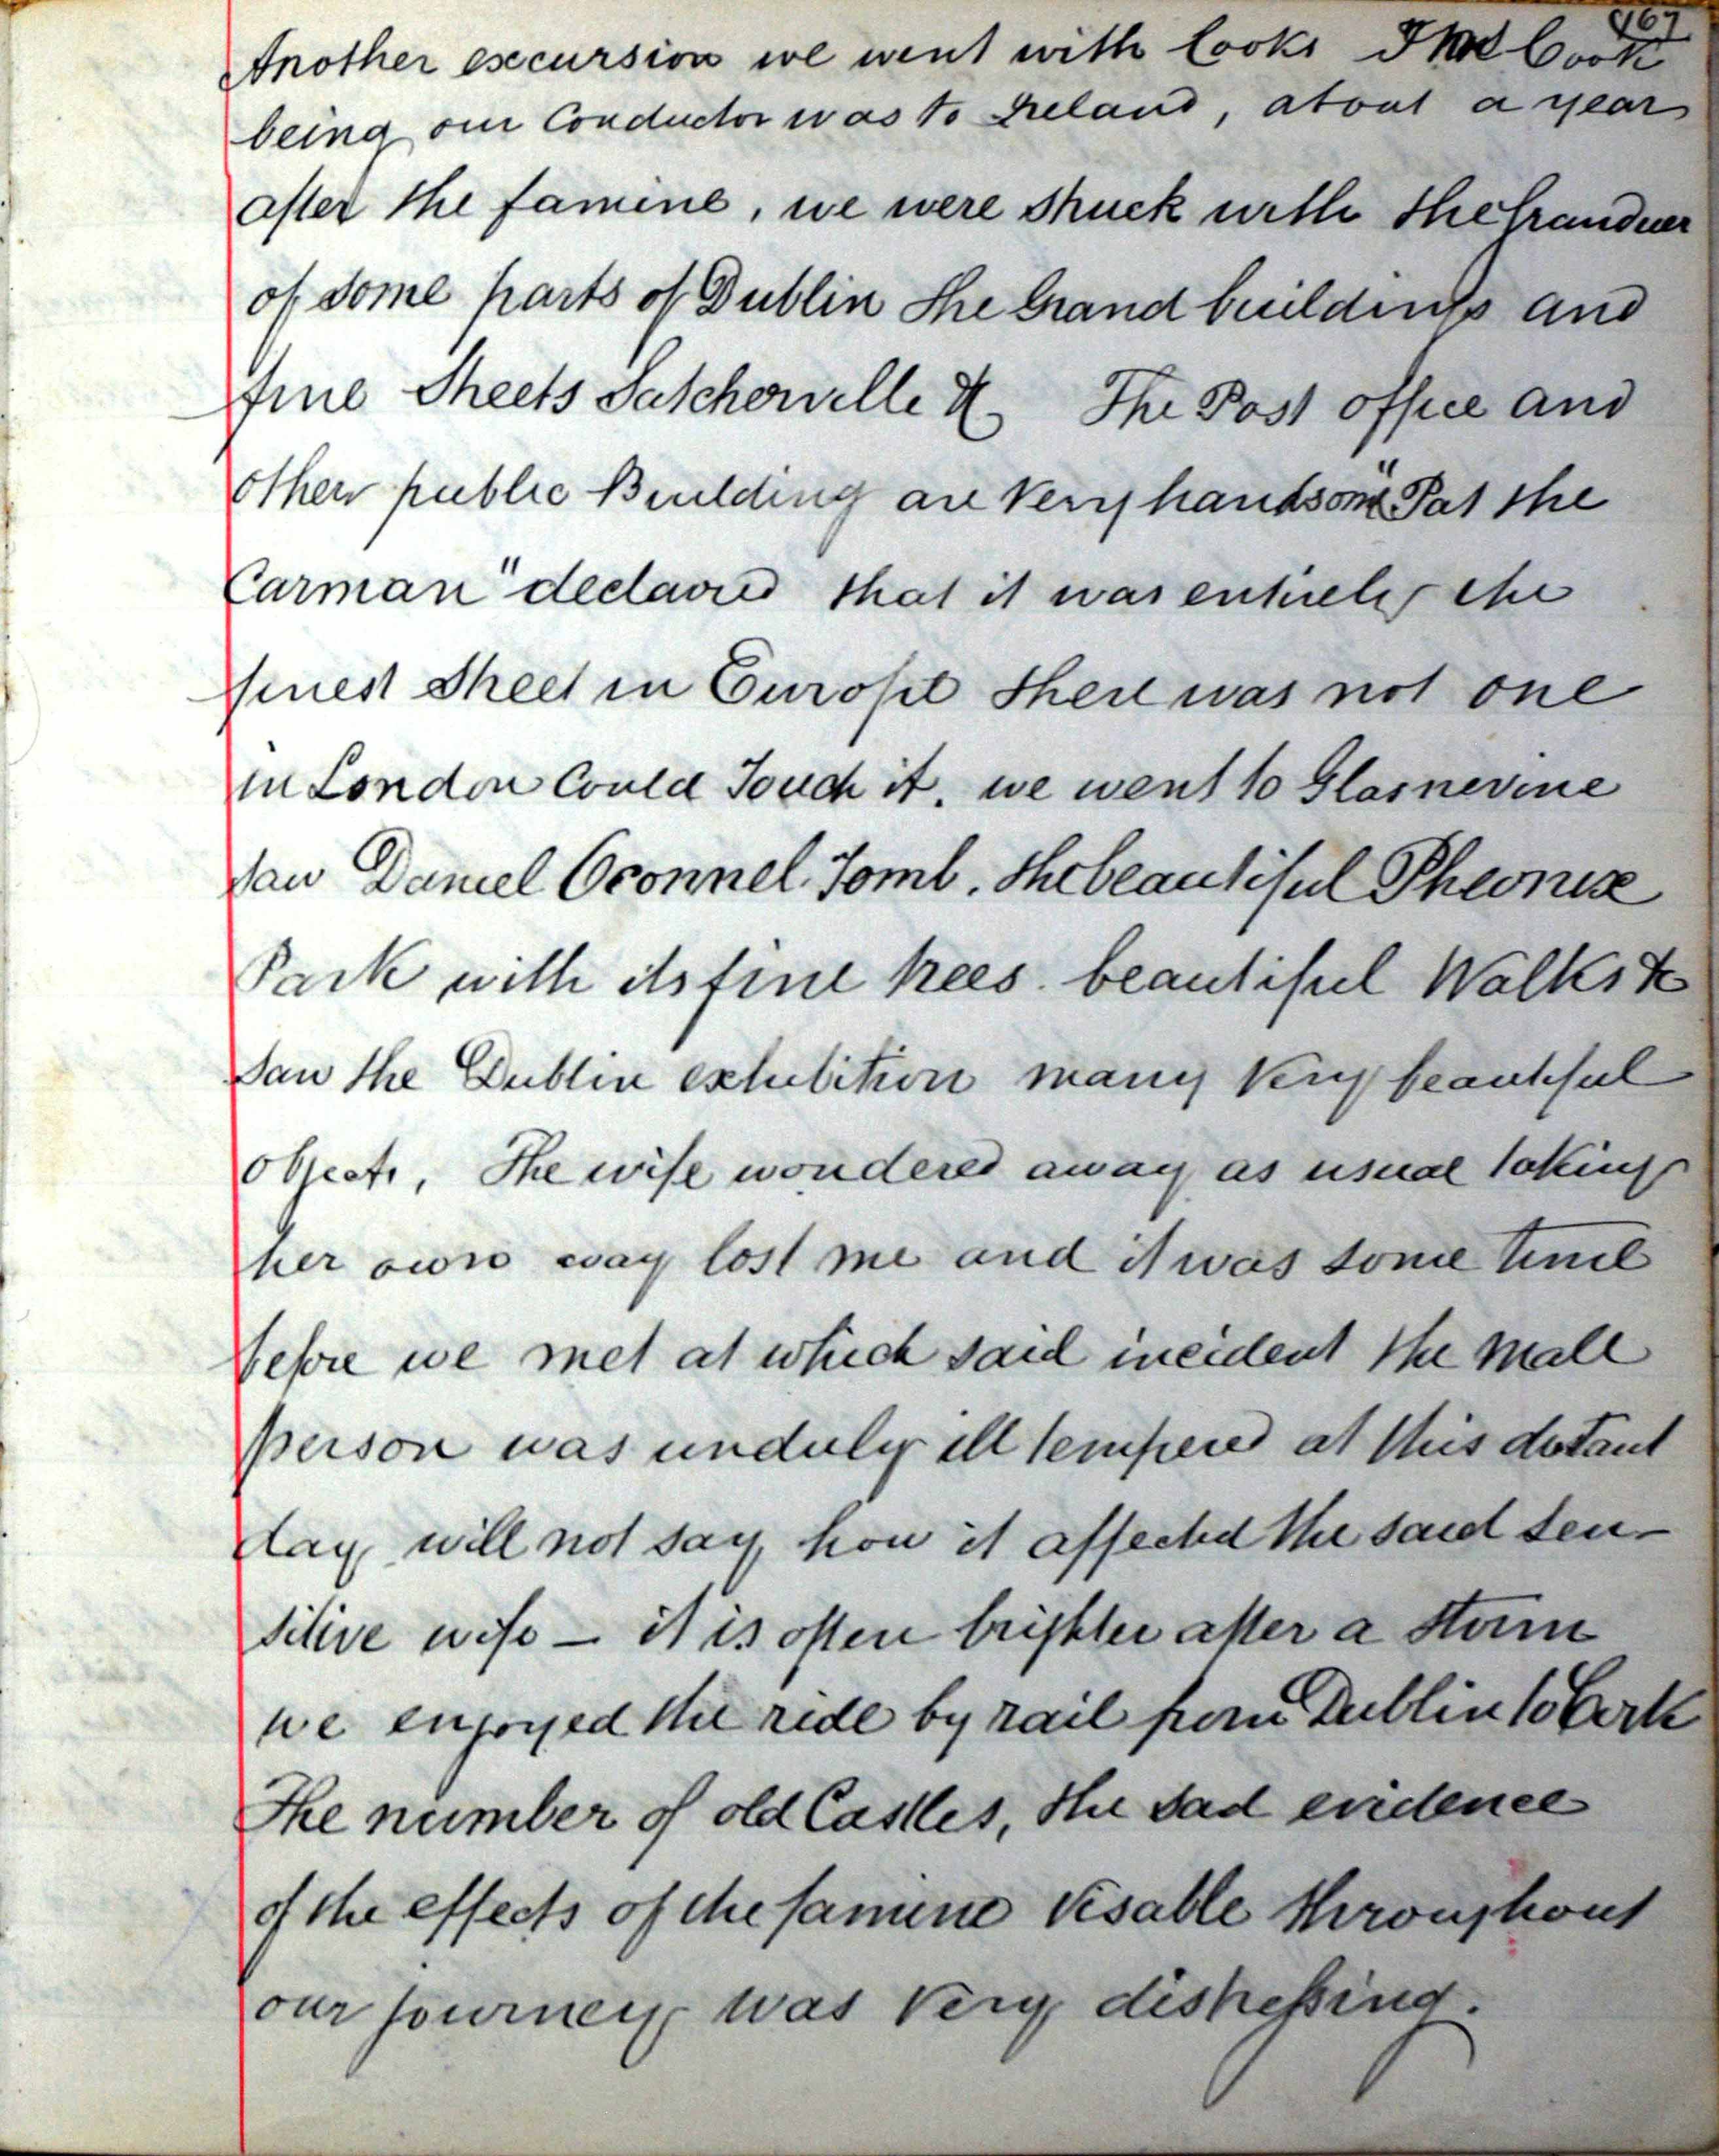 167
Another excursion we went with Cooks Cook
being our Conductor was to Ireland, about a year
after the famine, we were struck with the Grandeur
of some parts of Dublin the Grand buildings and
fine Streets Satcherville & The Post office and
other public Building are Very handsome "Pat the
Carman" declared that it was entirely the
finest Street in Europe there was not one
in London Could Touch it. we went to Glasnevine
saw Daniel Oconnel Tomb. the beautiful Pheonix
Park with its fine trees. beautiful Walks &
saw the Dublin exhibition many Very beautiful
objects, The wife wondered away as usual taking
her own way lost me and it was some time
before we met at which said incident the Male
person was unduly ill tempered at this distant
day will not say how it affected the said sen-
sitive wife – it is often brighter after a storm
we enjoyed the ride by rail from Dublin to Cork
The number of old Castles, the sad evidence
of the effects of the famine Visable throughout
our journey was Very distressing.